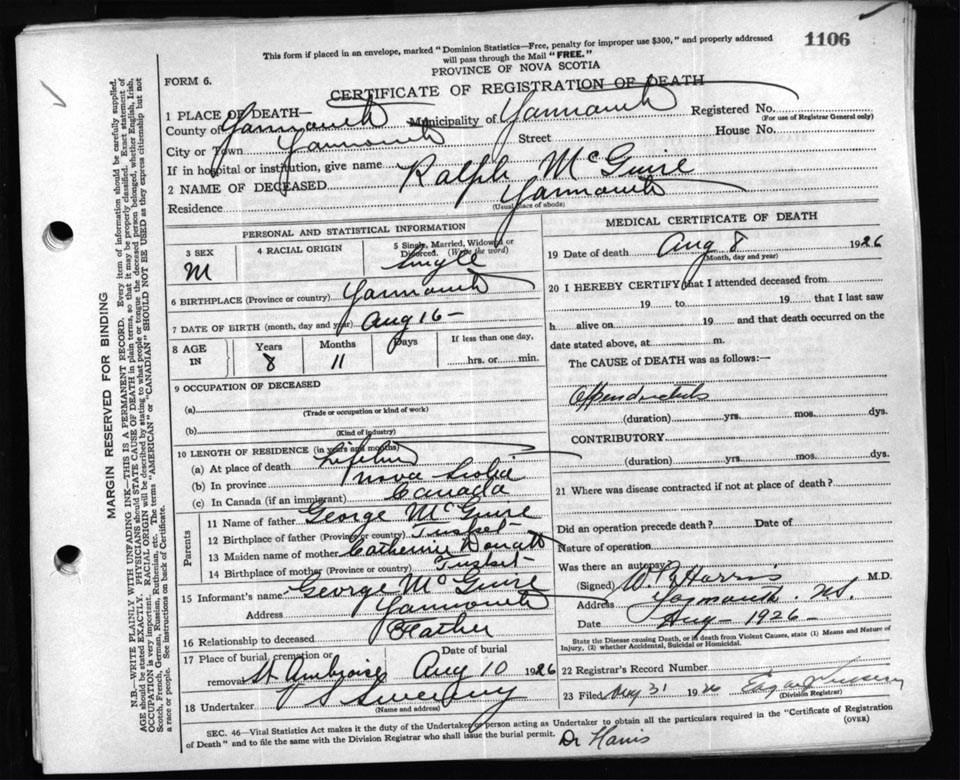 1106
This form if placed in an envelope, marked "Dominion Statistics—Free, penalty for improper use $300," and properly addressed
will pass through the Mail "FREE."
PROVINCE OF NOVA SCOTIA
FORM 6.
CERTIFICATE OF REGISTRATION OF DEATH
1 PLACE OF DEATH—
County of Yarmouth Municipality of Yarmouth Registered No.
(For use of Registrar General only)
City or Town Yarmouth Street House No.
If in hospital or institution, give name
2 NAME OF DECEASED Ralph McGuire
Residence Yarmouth
(Usual place of abode)
PERSONAL AND STATISTICAL INFORMATION
3 SEX M
4 RACIAL ORIGIN
5 Single, Married, Widowed or
Divorced. (Write the word)
Single
6 BIRTHPLACE (Province or country) Yarmouth
7 DATE OF BIRTH (month, day and year) Aug 16 —
8 AGE IN Years Months Days If less than one day,
8 11 hrs. or min.
9 OCCUPATION OF DECEASED
(a)
(Trade or occupation or kind of work)
(b)
(Kind of industry)
10 LENGTH OF RESIDENCE (in years and months)
(a) At place of death Lifetime
(b) In province Nova Scotia
(c) In Canada (if an immigrant) Canada
Parents
11 Name of father George McGuire
12 Birthplace of father (Province or country) Tusket
13 Maiden name of mother Catherine
14 Birthplace of mother (Province or country) Tusket
15 Informant's name George McGuire
Address Yarmouth
16 Relationship to deceased Father
17 Place of burial, cremation or Date of burial
removal St Ambroise Aug 10 1926
18 Undertaker Sweeny
(Name and address)
MEDICAL CERTIFICATE OF DEATH
19 Date of death Aug 8 1926
(Month, day and year)
20 I HEREBY CERTIFY that I attended deceased from
19 to 19 that I last saw
h alive on 19 and that death occurred on the
date stated above, at m.
The CAUSE of DEATH was as follows:—
Appendicitis
(duration) yrs. mos. dys.
CONTRIBUTORY
(duration) yrs. mos. dys.
21 Where was disease contracted if not at place of death?
Did an operation precede death? Date of
Nature of operation
Was there an autopsy?
(Signed) Harris M.D.
Address Yarmouth. NS.
Date Aug — 1926 —
State the Disease causing Death, or in death from Violent Causes, state (1) Means and Nature of
Injury, (2) whether Accidental, Suicidal or Homicidal.
22 Registrar's Record Number
23 Filed Aug 31 1926
(Division Registrar)
SEC. 46—Vital Statistics Act makes it the duty of the Undertaker or person acting as Undertaker to obtain all the particulars required in the "Certificate of Registration
of Death" and to file the same with the Division Registrar who shall issue the burial permit.
(OVER)
Dr Harris
MARGIN RESERVED FOR BINDING
N.B.—WRITE PLAINLY WITH UNFADING INK—THIS IS A PERMANENT RECORD. Every item of information should be carefully supplied.
AGE should be stated EXACTLY. PHYSICIANS should STATE CAUSE OF DEATH in plain terms, so that it may be properly classified. Exact statement of
OCCUPATION is very important. RACIAL ORIGIN will be described by stating to what people or tongue the deceased person belonged, whether English, Irish,
Scotch, French, German, Russian, Ruthenian, etc. The terms "AMERICAN" or "CANADIAN" SHOULD NOT BE USED as they express citizenship but not
a race or people. See instructions on back of Certificate.